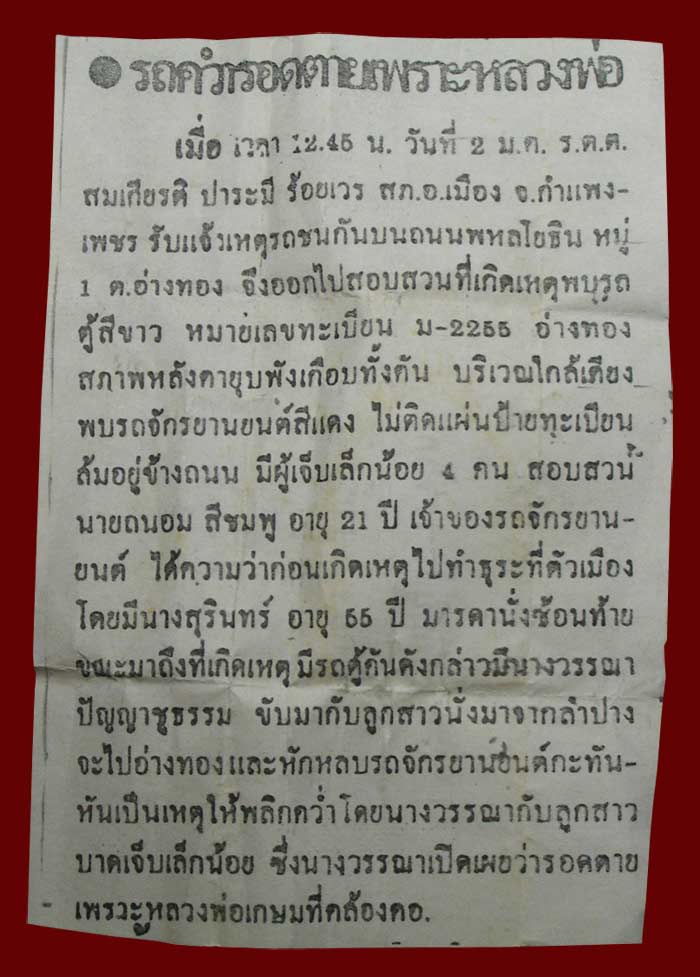 ● รถคว่ำรอดตายเพราะหลวงพ่อ
เมื่อ เวลา 12.45 น. วันที่ 2 ม.ค. ร.ต.ต.
สมเกียรติ ปาระมี ร้อยเวร สภ.อ.เมือง จ.กำแพง-
เพชร รับแจ้งเหตุรถชนกันบนถนนพหลโยธิน หมู่
1 ต.อ่างทอง จึงออกไปสอบสวนที่เกิดเหตุพบรถ
ตู้สีขาว หมายเลขทะเบียน ม-2255 อ่างทอง
สภาพหลังคายุบพังเกือบทั้งคัน บริเวณใกล้เคียง
พบรถจักรยานยนต์สีแดง ไม่ติดแผ่นป้ายทะเบียน
ล้มอยู่ข้างถนน มีผู้เจ็บเล็กน้อย 4 คน สอบสวน
นายถนอม สีชมพู อายุ 21 ปี เจ้าของรถจักรยาน-
ยนต์ ได้ความว่าก่อนเกิดเหตุไปทำธุระที่ตัวเมือง
โดยมีนางสุรินทร์ อายุ 55 ปี มารดานั่งซ้อนท้าย
ขณะมาถึงที่เกิดเหตุ มีรถตู้คันดังกล่าวมีนางวรรณา
ปัญญาชูธรรม ขับมากับลูกสาวนั่งมาจากลำปาง
จะไปอ่างทองและหักหลบรถจักรยานยนต์กะทัน-
หันเป็นเหตุให้พลิกคว่ำ โดยนางวรรณากับลูกสาว
บาดเจ็บเล็กน้อย ซึ่งนางวรรณาเปิดเผยว่ารอดตาย
เพราะหลวงพ่อเกษมที่คล้องคอ.